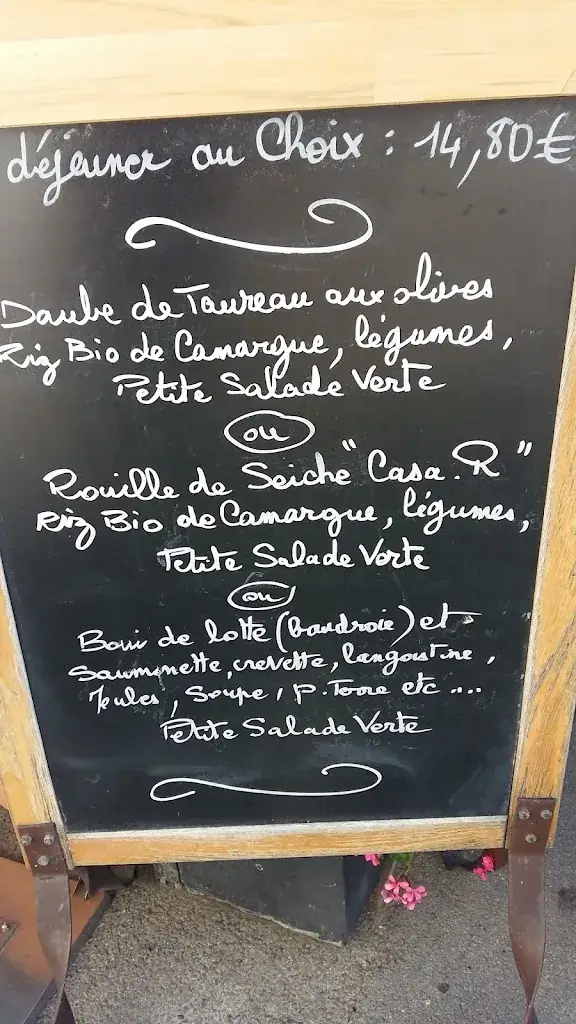 déjeuner au Choix : 14,80€
Daube de Taureau aux olives
Riz Bio de Camargue, légumes,
Petite Salade Verte
ou
Rouille de Seiche "Casa.R"
Riz Bio de Camargue, légumes,
Petite Salade Verte
ou
de lotte (baudroie) et
Saumonette, crevette, langoustine,
Soupe, P. Terre etc ....
Petite Salade Verte